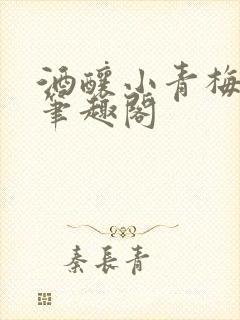 酒釀小青梅
筆趣閣
秦長青